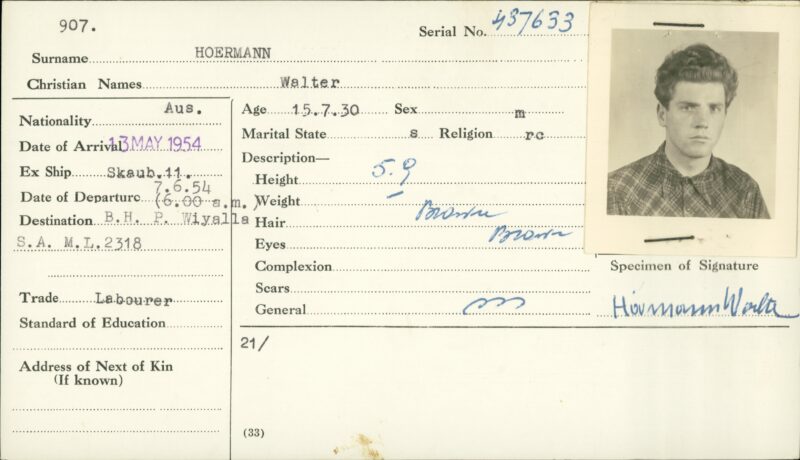 907.
Serial No. 437633
Surname HOERMANN
Christian Names Walter
Nationality Aus.
Date of Arrival 13 MAY 1954
Ex Ship Skaub.11.
Date of Departure 7.6.54
(6.00 a.m.)
Destination B.H. P. Wiyalla
S.A. M.L.2318
Trade Labourer
Standard of Education
Address of Next of Kin
(If known)
Age 15.7.30 Sex m
Marital State s Religion rc
Description—
Height 5.9
Weight –
Hair Brown
Eyes Brown
Complexion
Scars
General
21/
(33)
Specimen of Signature
Hörmann Walter